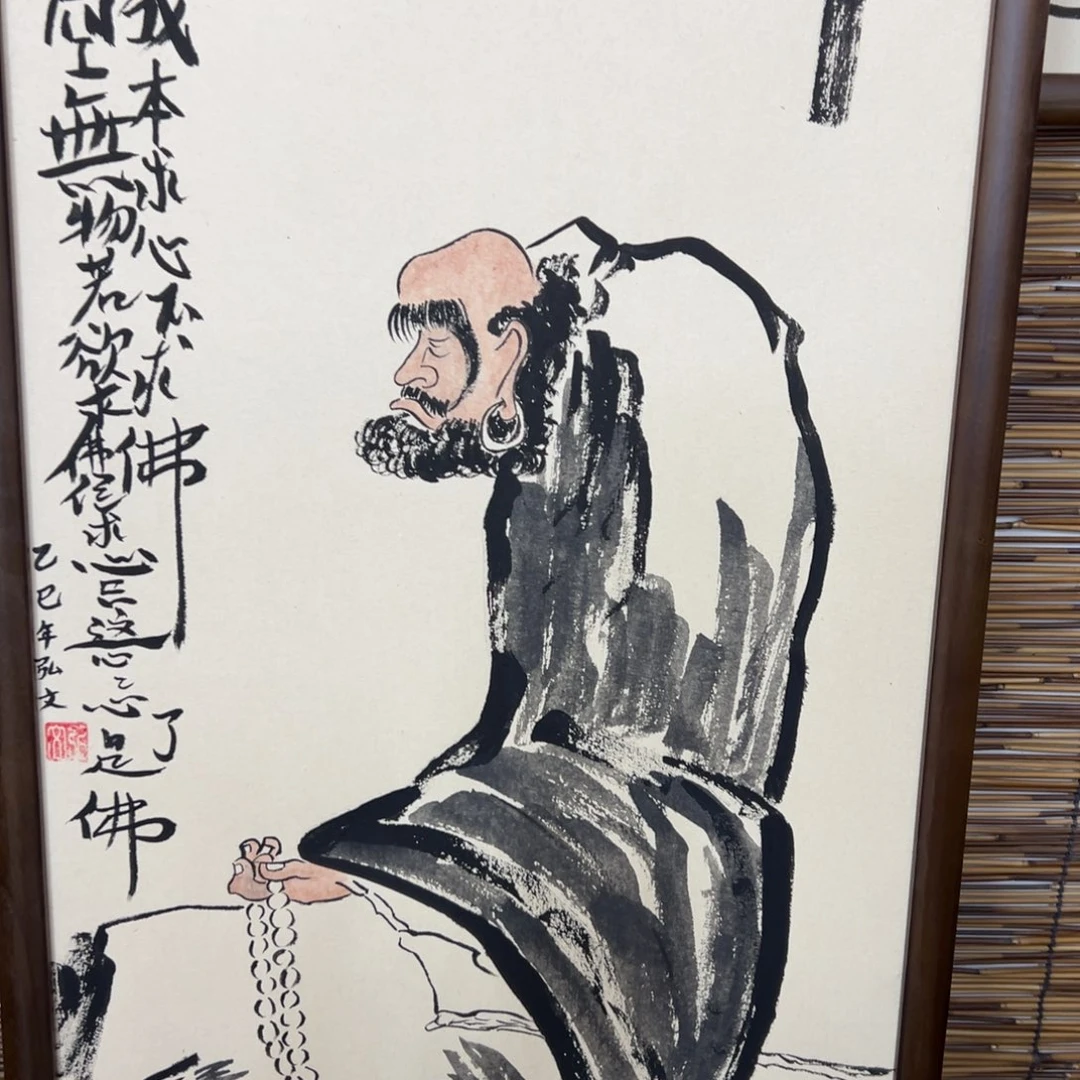 我本求心不求佛了
空無物若欲求佛但求心只這心〻心是佛
乙巳年弘文